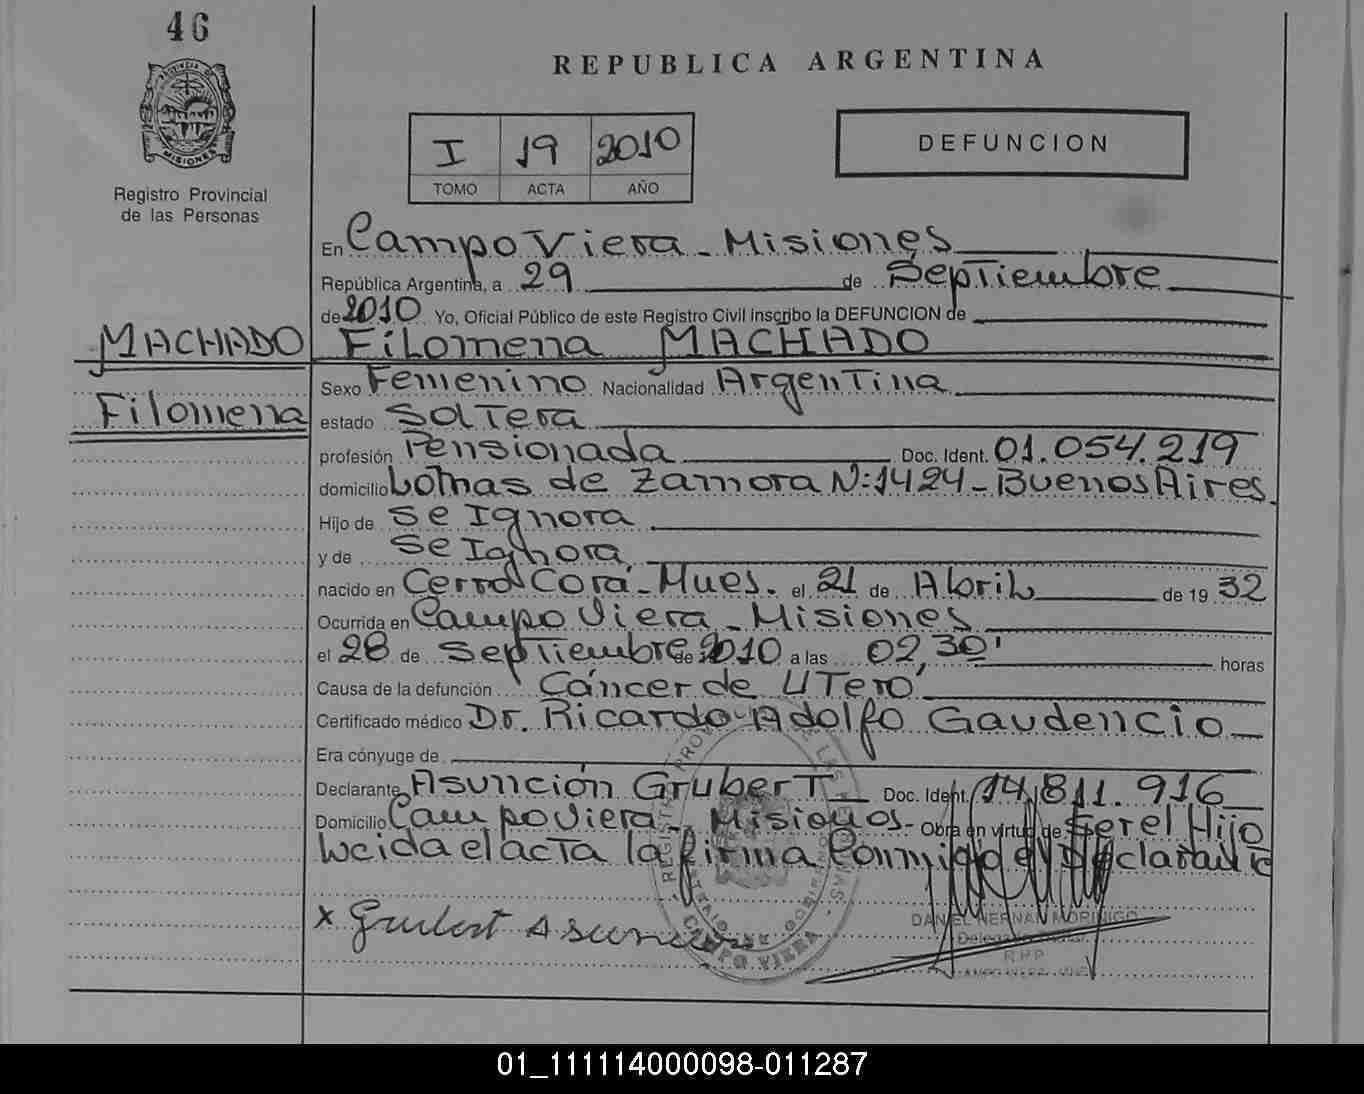 46
PROVINCIA DE
MISIONES
Registro Provincial
de las Personas
REPUBLICA ARGENTINA
I 19 2010
TOMO ACTA AÑO
DEFUNCION
En Campo Viera - Misiones
República Argentina, a 29 de Septiembre
de 2010 Yo, Oficial Público de este Registro Civil inscribo la DEFUNCION de
MACHADO Filomena MACHADO
Sexo Femenino Nacionalidad Argentina
Filomena
estado Soltera
profesión Pensionada Doc. Ident. 01.054.219
domicilio Lomas de Zamora N:1424 - Buenos Aires.
Hijo de Se Ignora
y de Se Ignora
nacido en Cerro Corá - Mnes. el 21 de Abril de 19 32
Ocurrida en Campo Viera - Misiones
el 28 de Septiembre de 2010 a las 02,30' horas
Causa de la defunción Cáncer de Utero
Certificado médico Dr. Ricardo Adolfo Gaudencio
Era cónyuge de
Declarante Asunción Grubert Doc. Ident. 14.811.916
Domicilio Campo Viera - Misiones - Obra en virtud de Ser el Hijo
Leida el acta la firma Conmigo el Declarante
x Grubert Asuncion
CAMPO VIERA
DANIEL HERNAN MORINIGO
R.P.P
01_111114000098-011287